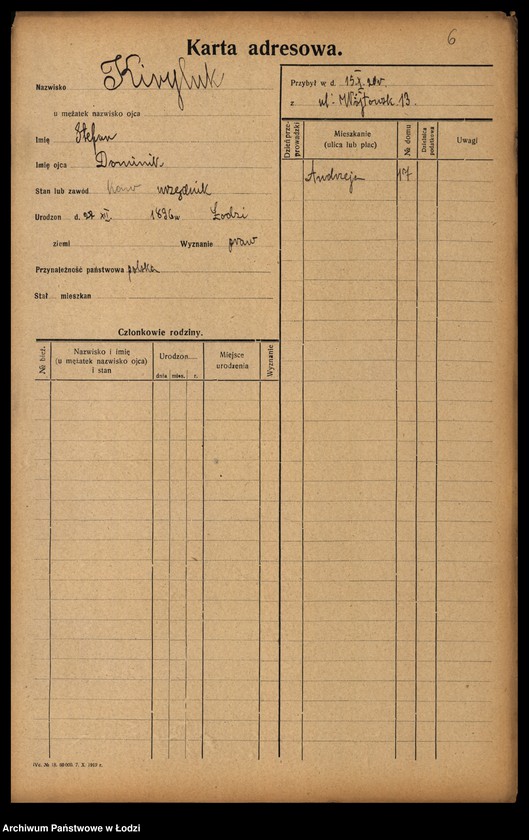 6
Karta adresowa.
Nazwisko Kiryluk
u mężatek nazwisko ojca
Imię Stefan
Imię ojca Dominik
Stan lub zawód kaw urzędnik
Urodzon d. 27 XII 1896 w Łodzi
ziemi Wyznanie praw
Przynależność państwowa polska
Stał mieszkan
Przybył w d. 15 X 20 r.
z ul: Wójtowsk 13.
Dzień przeprowadzki
Mieszkanie
(ulica lub plac)
№ domu
Dzielnica podatkowa
Uwagi
Andrzeja 17
Członkowie rodziny.
№ bież.
Nazwisko i imię
(u mężatek nazwisko ojca)
i stan
Urodzon
dnia mies. r.
Miejsce
urodzenia
Wyznanie
IVd. № 15. 7. X. 1919 r.
Archiwum Państwowe w Łodzi